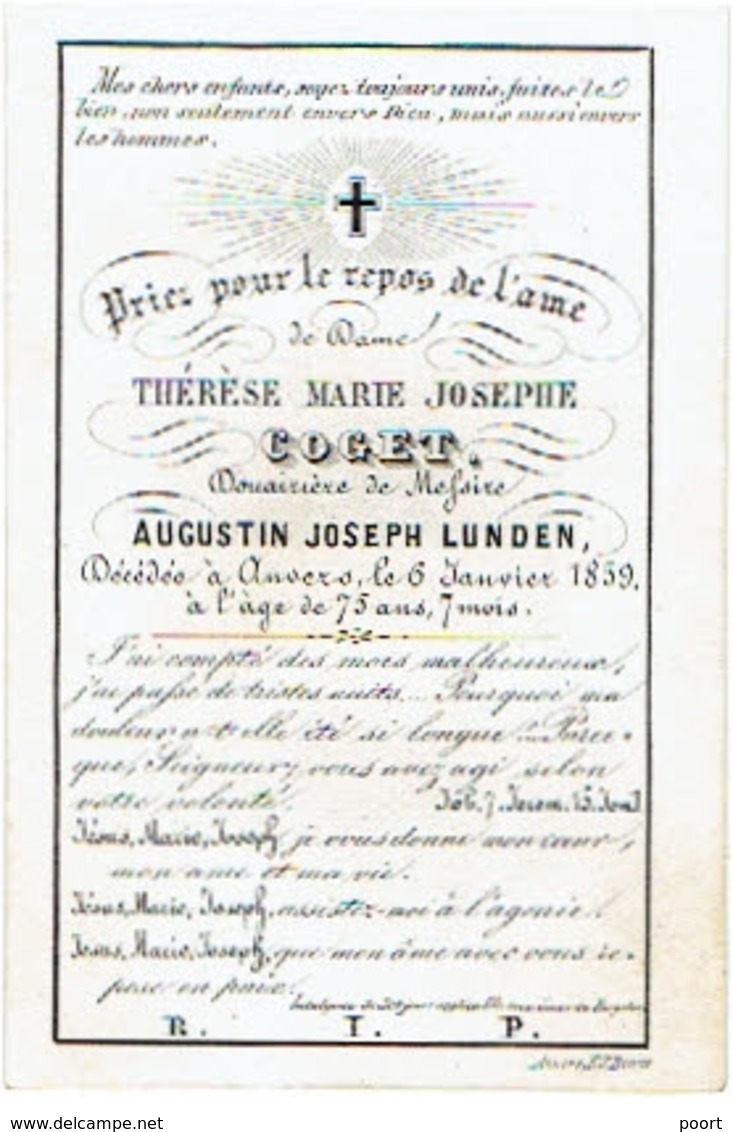 Mes chers enfants, soyez toujours unis, faites le
bien, non seulement envers Dieu, mais aussi envers
les hommes.
Priez pour le repos de l'ame
de Dame
THÉRÈSE MARIE JOSEPHE
COGET,
Douairière de Messire
AUGUSTIN JOSEPH LUNDEN,
Décédée à Anvers, le 6 Janvier 1859,
à l'âge de 75 ans, 7 mois.
J'ai compté des mois malheureux,
j'ai passé de tristes nuits... Pourquoi ma
douleur a-t-elle été si longue? Parce-
que, Seigneur, vous avez agi selon
votre volonté. Job. 7. Jerem. 15.
Jésus, Marie, Joseph, je vous donne mon cœur,
mon ame et ma vie.
Jésus, Marie, Joseph, assistez-moi à l'agonie!
Jésus, Marie, Joseph, que mon âme avec vous re-
pose en paix!
R. I. P.
Anvers
delcampe.net
poort